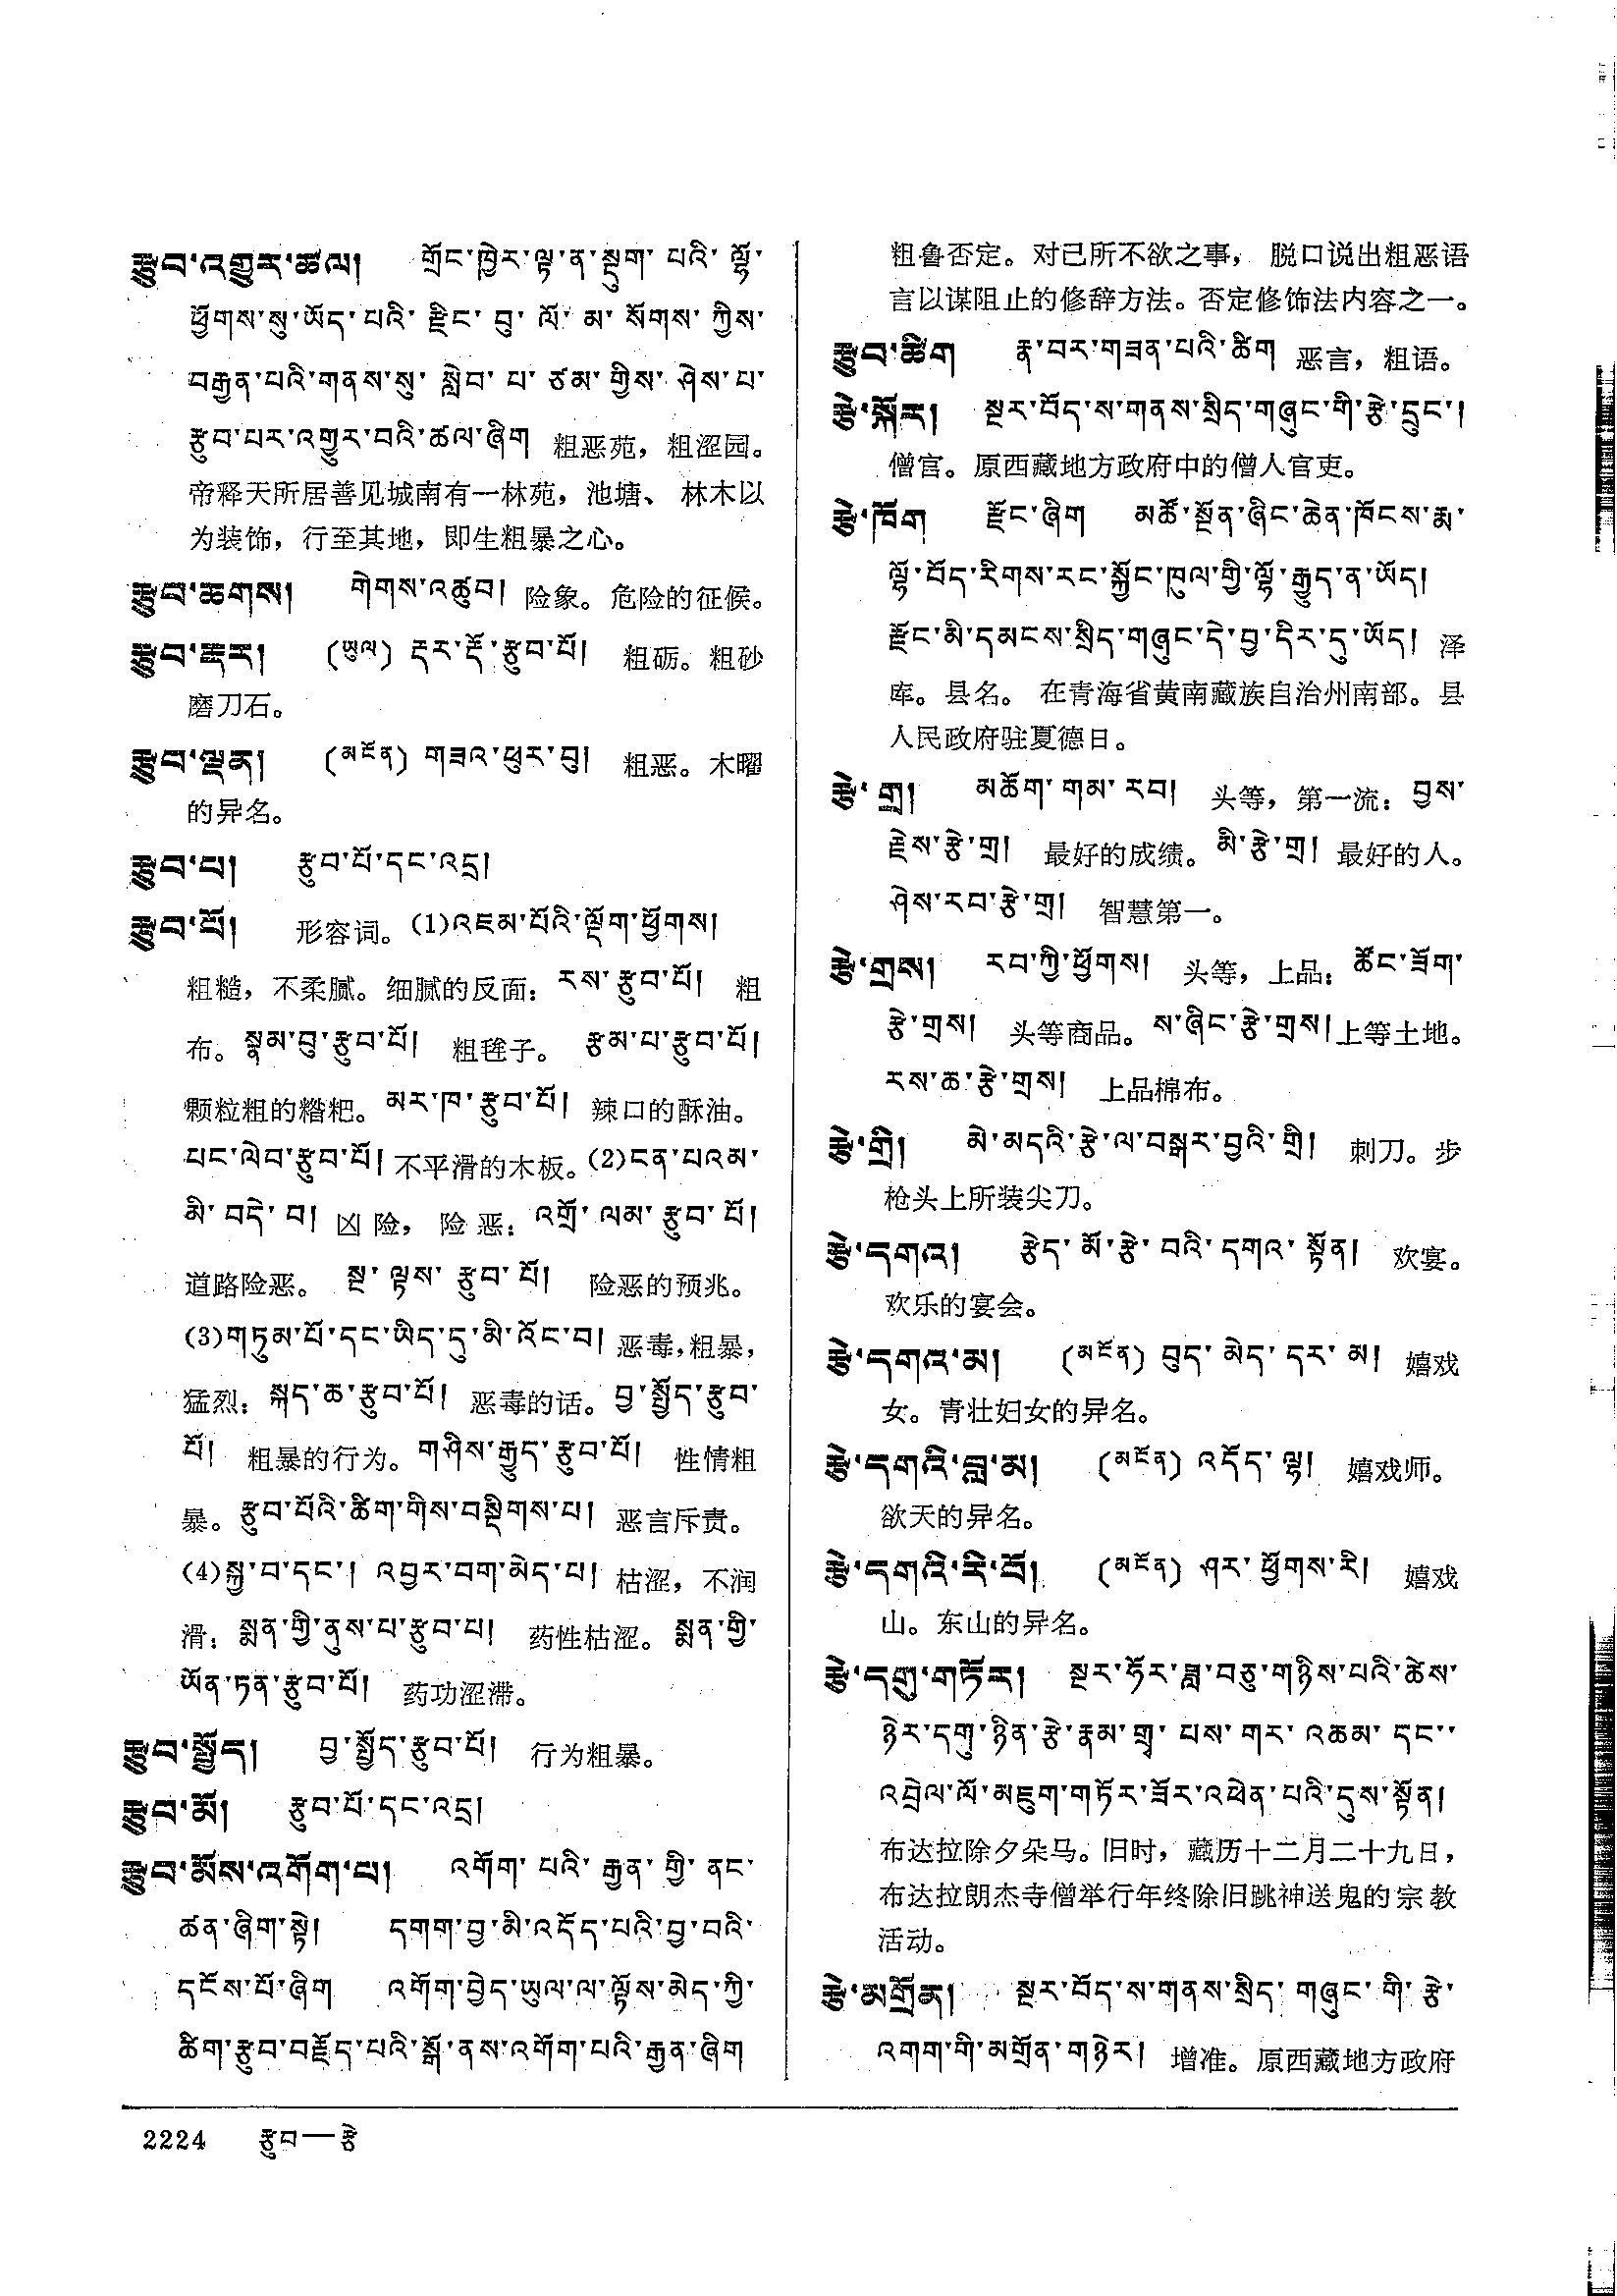 རྩུབ་འགྱུར་ཚལ། གྲོང་ཁྱེར་ལྟ་ན་སྡུག་ པའི་ ལྷོ་
ཕྱོགས་སུ་ཡོད་པའི་ རྫིང་ བུ་ ལོ་ མ་ སོགས་ ཀྱིས་
བརྒྱན་པའི་གནས་སུ་ སླེབ་ པ་ ཙམ་ གྱིས་ ཤེས་པ་
རྩུབ་པར་འགྱུར་བའི་ཚལ་ཞིག 粗恶苑，粗涩园。
帝释天所居善见城南有一林苑，池塘、林木以
为装饰，行至其地，即生粗暴之心。
རྩུབ་ཆགས། གེགས་འཚུབ། 险象。危险的征候。
རྩུབ་རྡར། (ཡུལ) རྡར་རྡོ་རྩུབ་པོ། 粗砺。粗砂
磨刀石。
རྩུབ་ལྡན། (མངོན) གཟའ་ཕུར་བུ། 粗恶。木曜
的异名。
རྩུབ་པ། རྩུབ་པོ་དང་འདྲ།
རྩུབ་པོ། 形容词。(1)འཇམ་པོའི་ལྡོག་ཕྱོགས།
粗糙，不柔腻。细腻的反面：རས་རྩུབ་པོ། 粗
布。སྣམ་བུ་རྩུབ་པོ། 粗氆子。 རྩམ་པ་རྩུབ་པོ།
颗粒粗的糌粑。མར་ཁ་རྩུབ་པོ། 辣口的酥油。
པང་ལེབ་རྩུབ་པོ། 不平滑的木板。(2)ངན་པའམ་
མི་ བདེ་ བ། 凶险，险恶：འགྲོ་ ལམ་ རྩུབ་ པོ།
道路险恶。 སྔ་ ལྟས་ རྩུབ་ པོ། 险恶的预兆。
(3)གཏུམ་པོ་དང་ཡིད་དུ་མི་འོང་བ། 恶毒，粗暴，
猛烈：སྐད་ཆ་རྩུབ་པོ། 恶毒的话。བྱ་སྤྱོད་རྩུབ་
པོ། 粗暴的行为。གཤིས་རྒྱུད་རྩུབ་པོ། 性情粗
暴。རྩུབ་པོའི་ཚིག་གིས་བསྡིགས་པ། 恶言斥责。
(4)སྐྱ་བ་དང་། འབྱར་བག་མེད་པ། 枯涩，不润
滑：སྨན་གྱི་ནུས་པ་རྩུབ་པ། 药性枯涩。སྨན་གྱི་
ཡོན་ཏན་རྩུབ་པོ། 药功涩滞。
རྩུབ་སྤྱོད། བྱ་སྤྱོད་རྩུབ་པོ། 行为粗暴。
རྩུབ་མོ། རྩུབ་པོ་དང་འདྲ།
རྩུབ་མོས་འགོག་པ། འགོག་ པའི་ རྒྱན་ གྱི་ ནང་
ཚན་ཞིག་སྟེ། དགག་བྱ་མི་འདོད་པའི་བྱ་བའི་
དངོས་པོ་ཞིག འགོག་བྱེད་ཡུལ་ལ་ལྟོས་མེད་ཀྱི་
ཚིག་རྩུབ་བརྗོད་པའི་སྒོ་ནས་འགོག་པའི་རྒྱན་ཞིག
粗鲁否定。对己所不欲之事，脱口说出粗恶语
言以谋阻止的修辞方法。否定修饰法内容之一。
རྩུབ་ཚིག རྣ་བར་གཟན་པའི་ཚིག 恶言，粗语。
རྩེ་སྐོར། སྔར་བོད་ས་གནས་སྲིད་གཞུང་གི་རྩེ་དྲུང་།
僧官。原西藏地方政府中的僧人官吏。
རྩེ་ཁོག རྫོང་ཞིག མཚོ་སྔོན་ཞིང་ཆེན་ཁོངས་རྨ་
ལྷོ་བོད་རིགས་རང་སྐྱོང་ཁུལ་གྱི་ལྷོ་རྒྱུད་ན་ཡོད།
རྫོང་མི་དམངས་སྲིད་གཞུང་དེ་བྱ་དིར་དུ་ཡོད། 泽
库。县名。在青海省黄南藏族自治州南部。县
人民政府驻夏德日。
རྩེ་གྲ། མཆོག་ གམ་ རབ། 头等，第一流：བྱས་
རྗེས་རྩེ་གྲ། 最好的成绩。མི་རྩེ་གྲ། 最好的人。
ཤེས་རབ་རྩེ་གྲ། 智慧第一。
རྩེ་གྲས། རབ་ཀྱི་ཕྱོགས། 头等，上品：ཚོང་ཟོག་
རྩེ་གྲས། 头等商品。ས་ཞིང་རྩེ་གྲས། 上等土地。
རས་ཆ་རྩེ་གྲས། 上品棉布。
རྩེ་གྲི། མེ་མདའི་རྩེ་ལ་བསྒར་བྱའི་གྲི། 刺刀。步
枪头上所装尖刀。
རྩེ་དགའ། རྩེད་ མོ་རྩེ་ བའི་ དགའ་ སྟོན། 欢宴。
欢乐的宴会。
རྩེ་དགའ་མ། (མངོན) བུད་ མེད་ དར་ མ། 嬉戏
女。青壮妇女的异名。
རྩེ་དགའི་བླ་མ། (མངོན) འདོད་ ལྷ། 嬉戏师。
欲天的异名。
རྩེ་དགའི་རི་བོ། (མངོན) ཤར་ ཕྱོགས་རི། 嬉戏
山。东山的异名。
རྩེ་དགུ་གཏོར། སྔར་ཧོར་ཟླ་བཅུ་གཉིས་པའི་ཚེས་
ཉེར་དགུ་ཉིན་རྩེ་རྣམ་གྲྭ་ པས་ གར་ འཆམ་ དང་་
འབྲེལ་ལོ་མཇུག་གཏོར་ཟོར་འཕེན་པའི་དུས་སྟོན།
布达拉除夕朵马。旧时，藏历十二月二十九日，
布达拉朗杰寺僧举行年终除旧跳神送鬼的宗教
活动。
རྩེ་མགྲོན། སྔར་བོད་ས་གནས་སྲིད་ གཞུང་ གི་ རྩེ་
འགག་གི་མགྲོན་གཉེར། 增准。原西藏地方政府
2224 རྩུབ—རྩེ